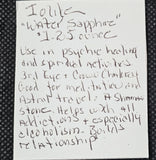 Iolite
"Water Sapphire"
Use in psychic healing
and spiritual activities
3rd Eye & Crown Chakras
Good for meditation and
Astral travel. A Shaman
stone. Helps with all
addictions & especially
alcoholism. Builds
relationship